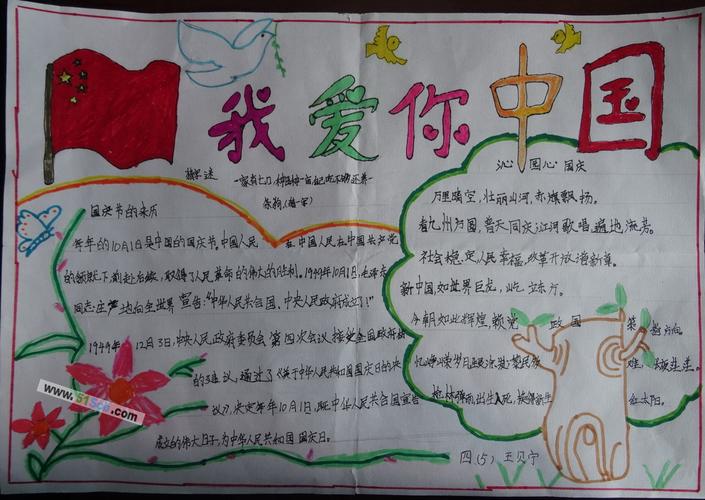 我爱你中国
国庆节的来历
每年的10月1日是中国的国庆节。中国人民
在中国人民在中国共产党
的领导下,前赴后继,取得了人民革命的伟大的胜利。1949年10月1日,毛泽东
同志庄严地向全世界宣告:"中华人民共合国,中央人民政府成立了!"
1949年12月3日,中央人民政府委员会第四次会议,接受全国政协
的建议,通过了《关于中华人民共和国国庆日的决
议》,决定每年10月1日,既中华人民共合国宣告
成立的伟大日子,为中华人民共和国国庆日。
沁园心 国庆
万里晴空,壮丽山河,赤旗飘扬。
看九州方圆,普天同庆,江河歌唱,遍地流芳。
社会稳定,人民幸福,改革开放谱新章。
新中国,如世界巨龙,屹立东方。
今朝如此辉煌,赖党政国策
忆峥嵘岁月
难
枪林弹雨出生入死,换得新
红太阳。
四(5) 王贝宁
www.51scb.com